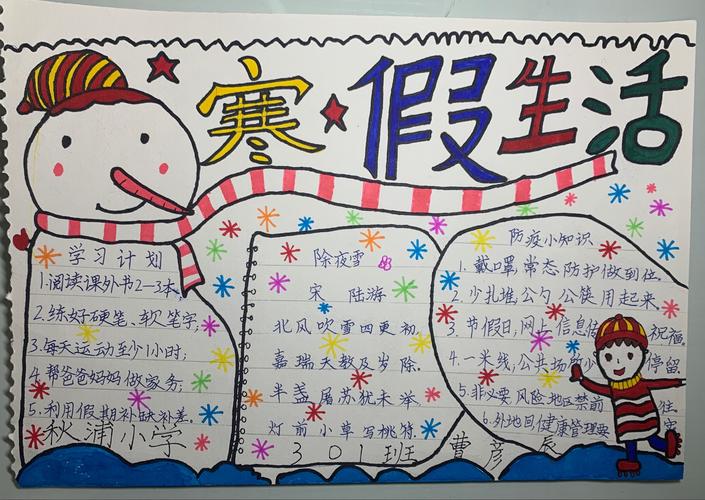 寒假生活
学习计划
1.阅读课外书2-3本
2.练好硬笔、软笔字;
3.每天运动至少1小时;
4.帮爸爸妈妈做家务;
5.利用假期补缺补差.
秋浦小学
除夜雪
宋 陆游
北风吹雪四更初
嘉瑞天教及岁除.
半盏屠苏犹未举
灯前小草写桃符.
301班 曹彦辰
防疫小知识
1.戴口罩,常态防护做到位.
2.少扎堆,公勺公筷用起来.
3.节假日,网上信息 祝福.
4.一米线,公共场所少停留.
5.非必要风险地区禁前往.
6.外地回健康管理要